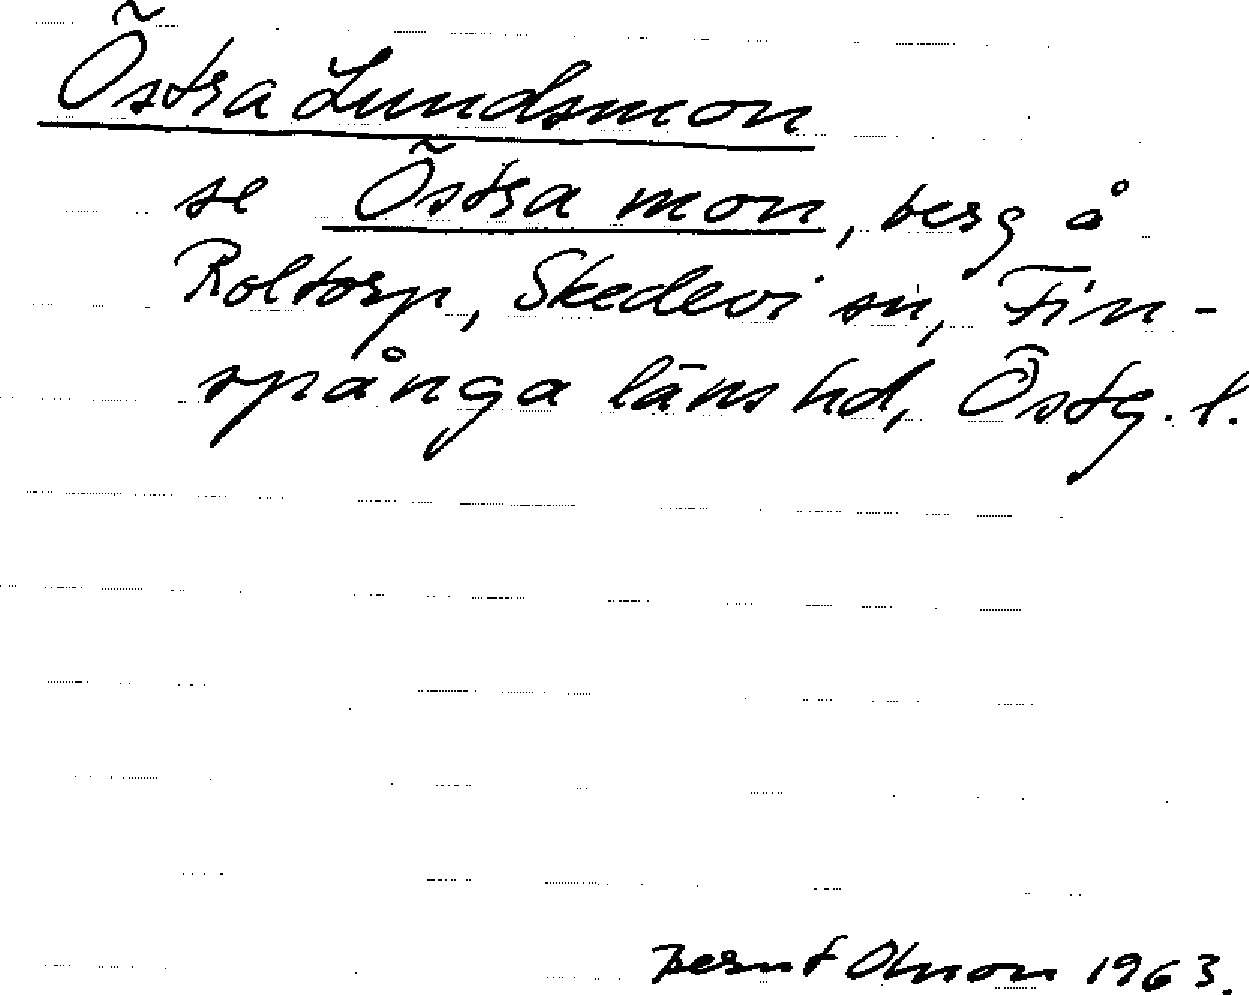 Östra Lundsmon
se Östra mon, berg å
Roltorp, Skedevi sn, Fin-
spånga läns hd, Östg. l.
Bernt Olsson 1963.